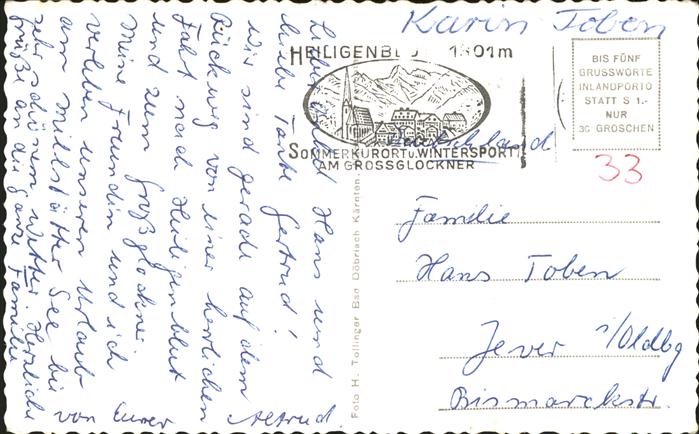 Karin Toben
HEILIGENBL 1301m
SOMMERKURORT u. WINTERSPORT
AM GROSSGLOCKNER
BIS FÜNF
GRUSSWORTE
INLANDPORTO
STATT S 1.-
NUR
30 GROSCHEN
33
Deutschland
Familie
Hans Toben
Jever i/Oldbg
Bismarckstr.
Foto H. Tollinger Bad Döbriach Kärnten
Lieber Hans und
liebe Tante Gertrud!
Wir sind gerade auf dem
Rückweg von einer herrlichen
Fahrt nach Heiligenblut
und zum Großglockner.
Meine Freundin und ich
verleben unseren Urlaub
am Millstätter See bei
sehr schönem Wetter. Herzliche
Grüße an die ganze Familie
von Eurer